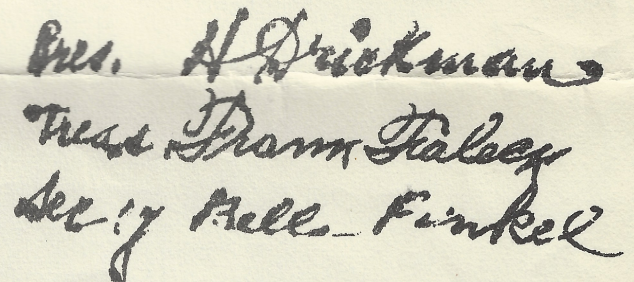 Pres. H Drickman
Treas. Frank Faley
Sec'y Bell Finkel